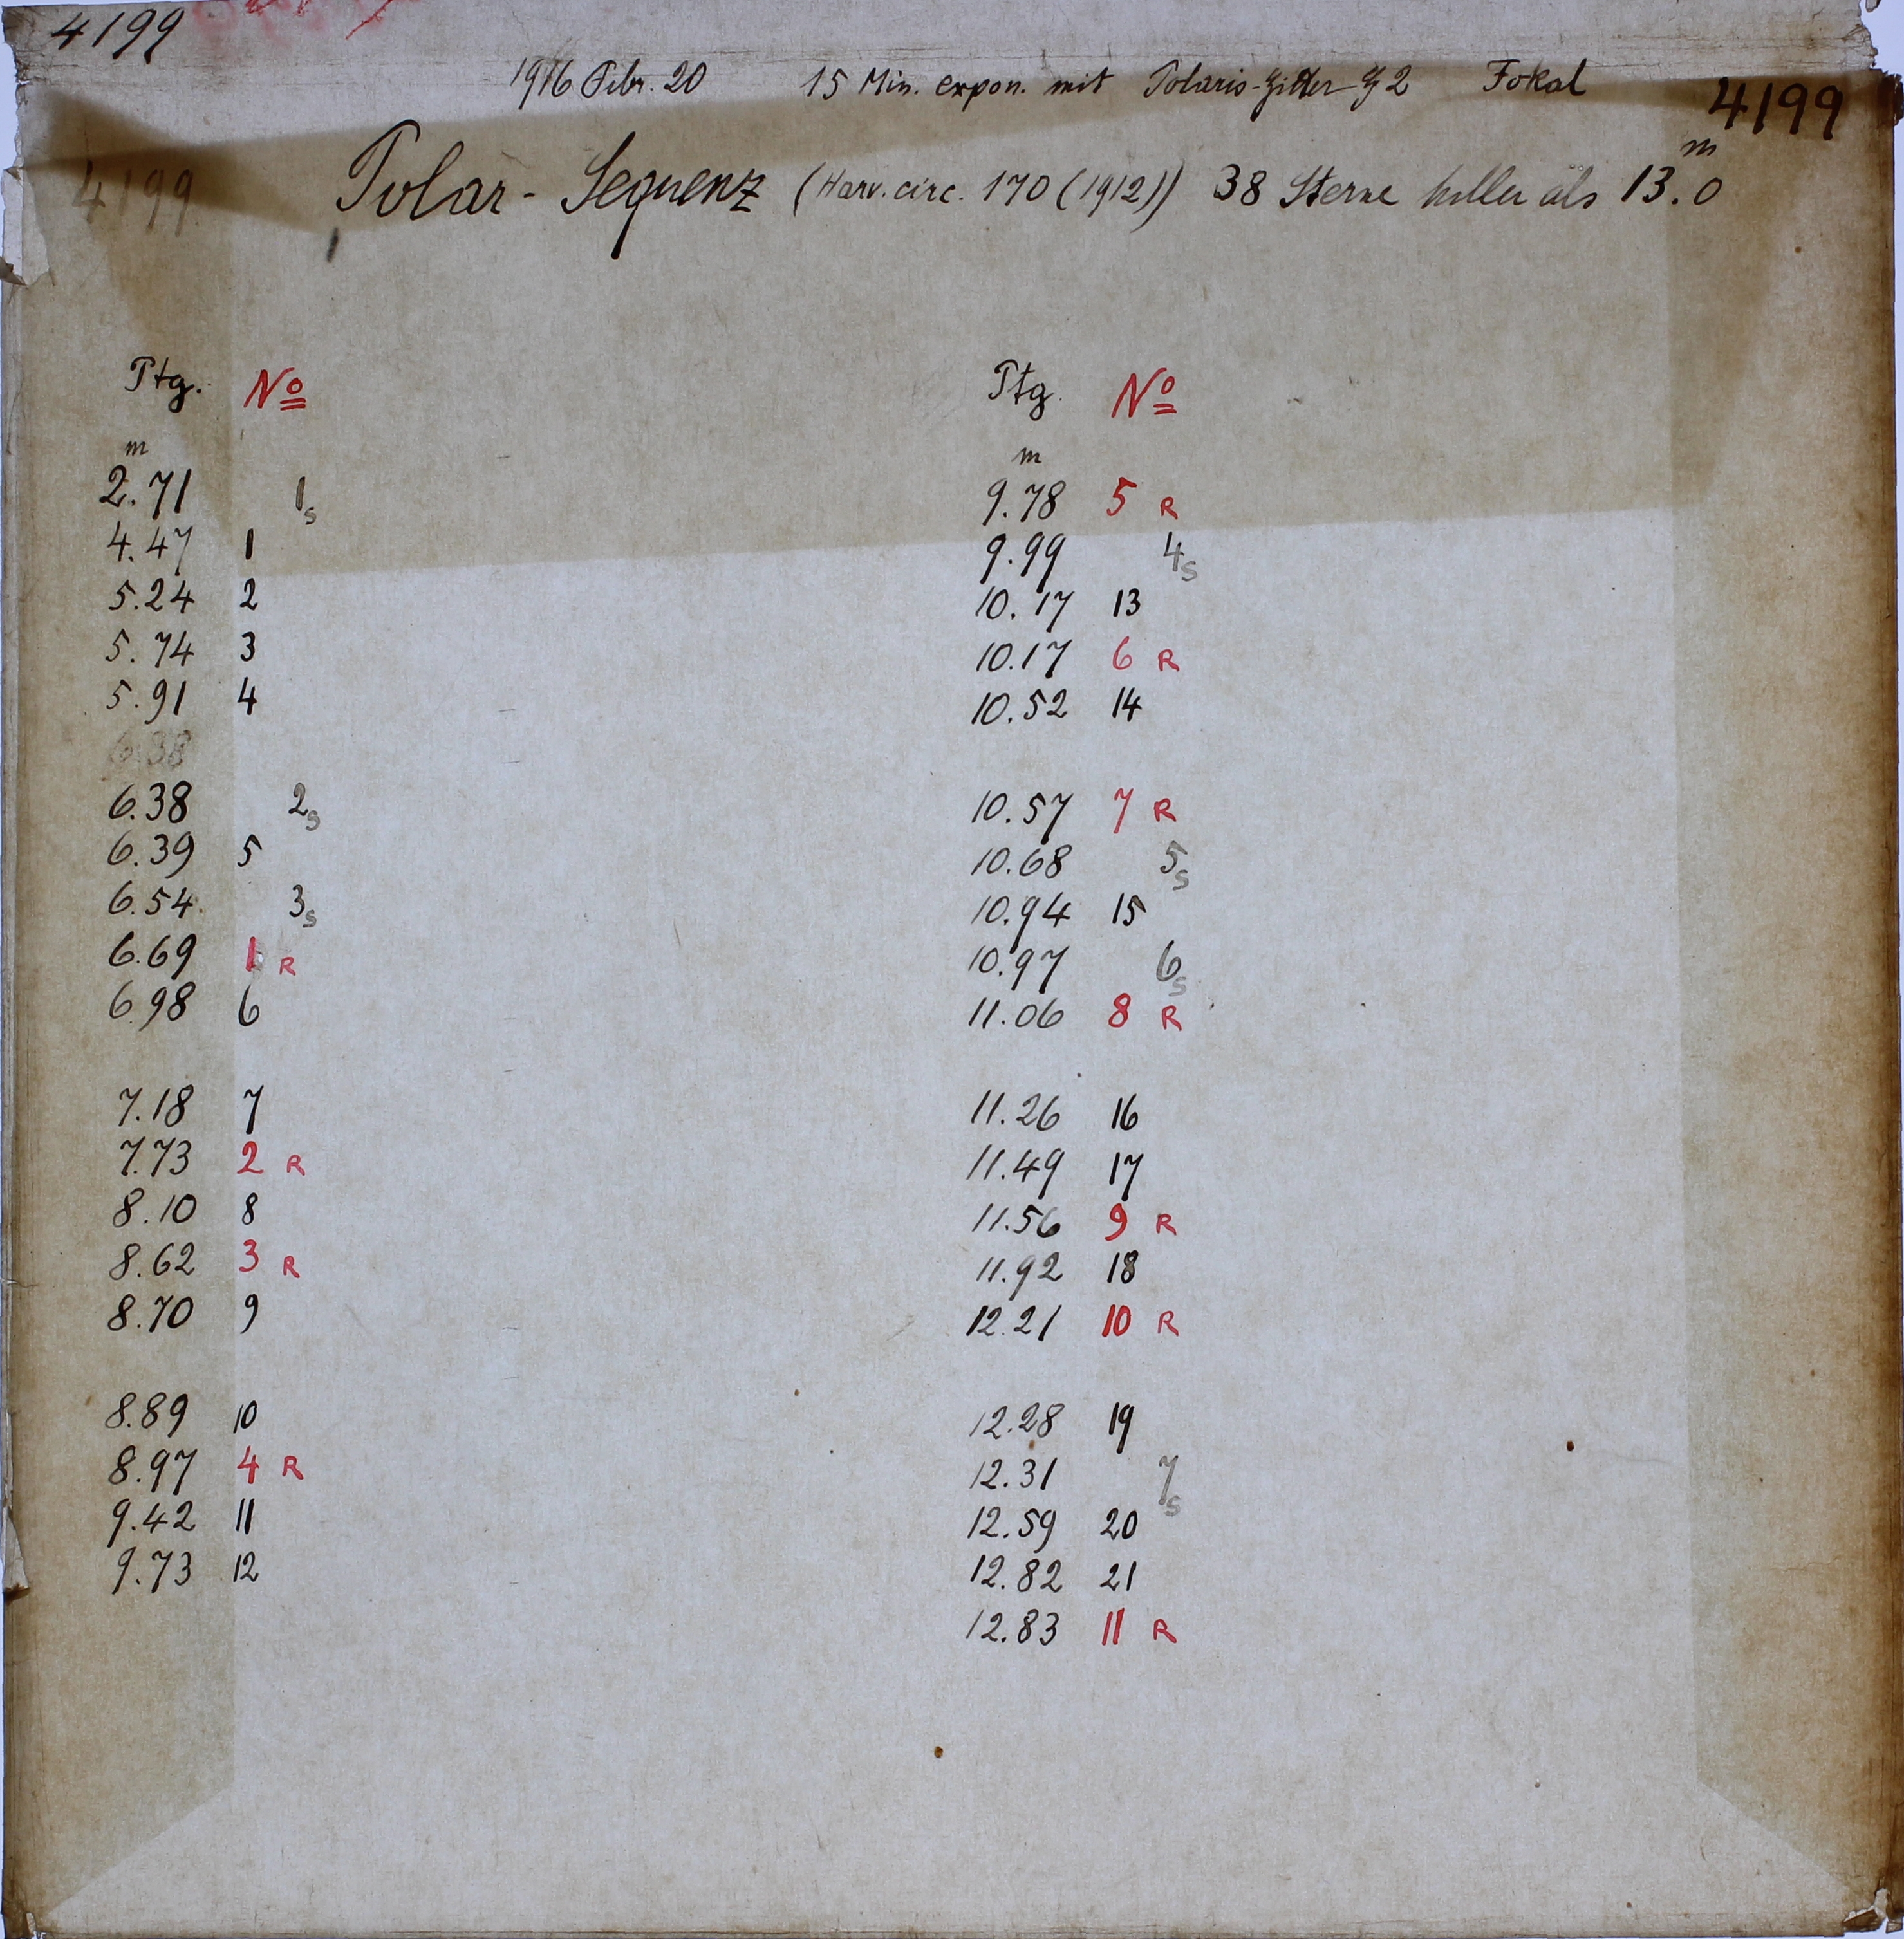 4199
1916 Febr. 20 15 Min. expon. mit Polaris-Gitter G 2 Fokal
4199
4199
Polar-Sequenz (Harv. circ. 170 (1912)) 38 Sterne heller als 13.ᵐ0
Ptg. Nº
m
2.71 1s
4.47 1
5.24 2
5.74 3
5.91 4
6.38
6.38 2s
6.39 5
6.54 3s
6.69 1 R
6.98 6
7.18 7
7.73 2 R
8.10 8
8.62 3 R
8.70 9
8.89 10
8.97 4 R
9.42 11
9.73 12
Ptg. Nº
m
9.78 5 R
9.99 4s
10.17 13
10.17 6 R
10.52 14
10.57 7 R
10.68 5s
10.94 15
10.97 6s
11.06 8 R
11.26 16
11.49 17
11.56 9 R
11.92 18
12.21 10 R
12.28 19
12.31 7s
12.59 20
12.82 21
12.83 11 R